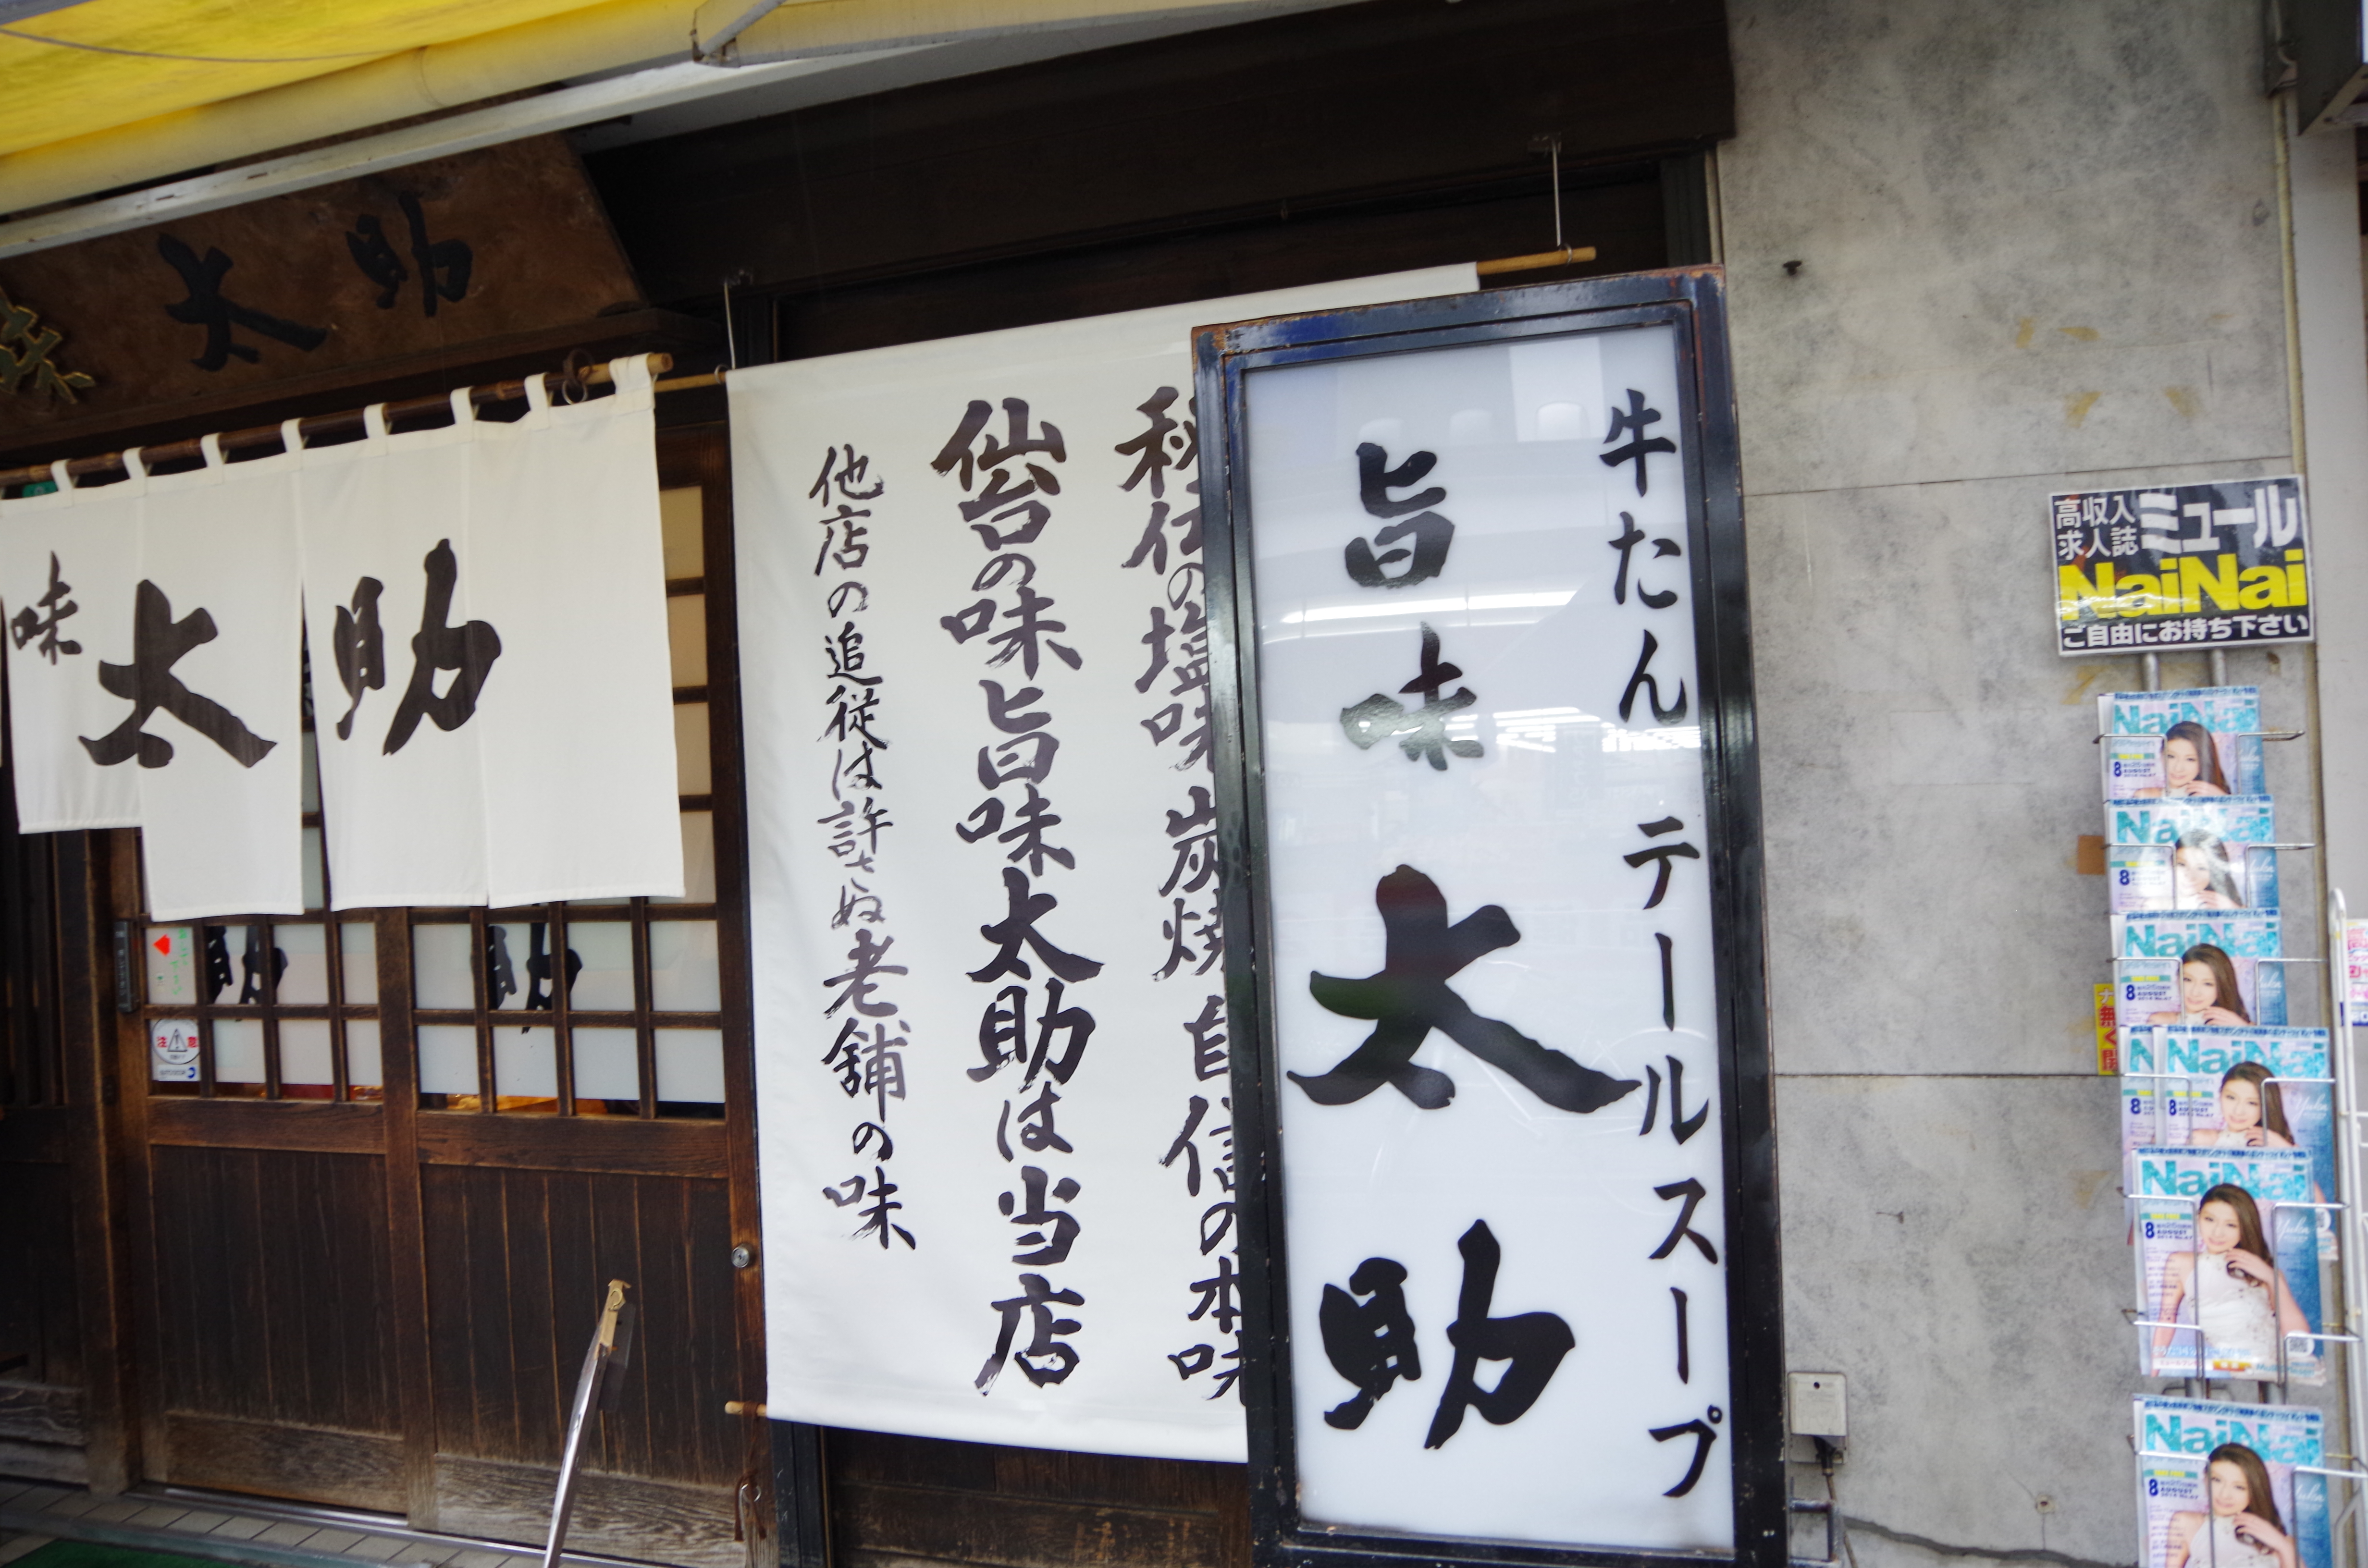 太助
味 太助
秘伝の塩味 炭焼 自信の本味
仙台の味旨味太助は当店
他店の追従は許さぬ老舗の味
牛たん テールスープ
旨味 太助
高収入
求人誌
ミュール
NaiNai
ご自由にお持ち下さい
NaiNai
8
NaiNai
8
NaiNai
8
NaiNai
8
NaiNai
8
AUGUST
NaiNai
8
AUGUST
注意